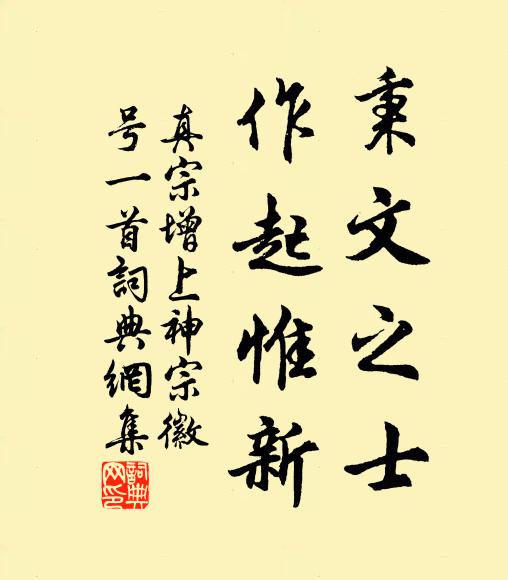 秉文之士
作起惟新
真宗增上神宗徽
号一首詞典網集
詞典网印